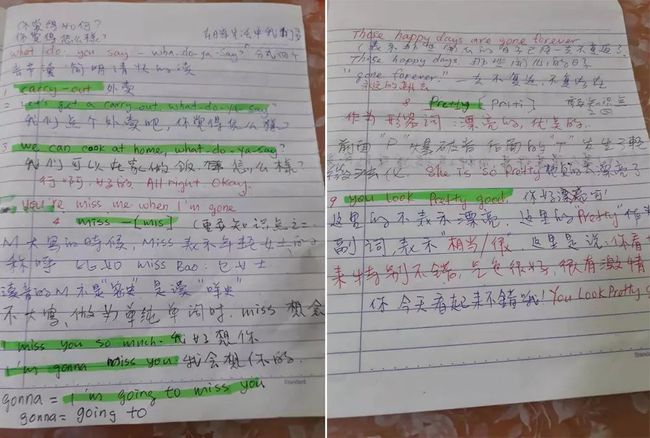 你觉得如何?
你觉得怎么样? 在日常生活中我们
what do you say - wha-do-ya-say?
1 carry-out 外卖
2 Let's get a carry out, what-do-ya-say
我们点个外卖吧,你觉得怎么样?
3 we can cook at home, what-do-ya-say?
我们可以在家做饭 怎么样?
行啊,好的 All right Okay.
you're miss me when I'm gone
4 miss-[mis] (重要知识点之二
M大写的時候,Miss表示年轻女士的
称呼 比如 miss Bao: 包女士
读音的M不是"密史"是读"咪史"
不大写,做为单纯单词时. miss 想念
I miss you so much. 我好想你
I'm gonna miss you 我会想你的.
gonna = I'm going to miss you
gonna = going to
Those happy days are gone forever
Those happy days 那些
"gone forever" 一去不复返,不复存在
8 Pretty [priti] 重要知识点
作为形容词:漂亮的,优美的.
She is so Pretty 她真的太漂亮了
9 you look Pretty good. 你好漂亮啊!
这里的不表示漂亮,这里的"Pretty"作为
副词,表示 相当/很 这里是说:你看
来特别不错,气色很好,很有激情
你今天看起来不錯哦! You Look Pretty